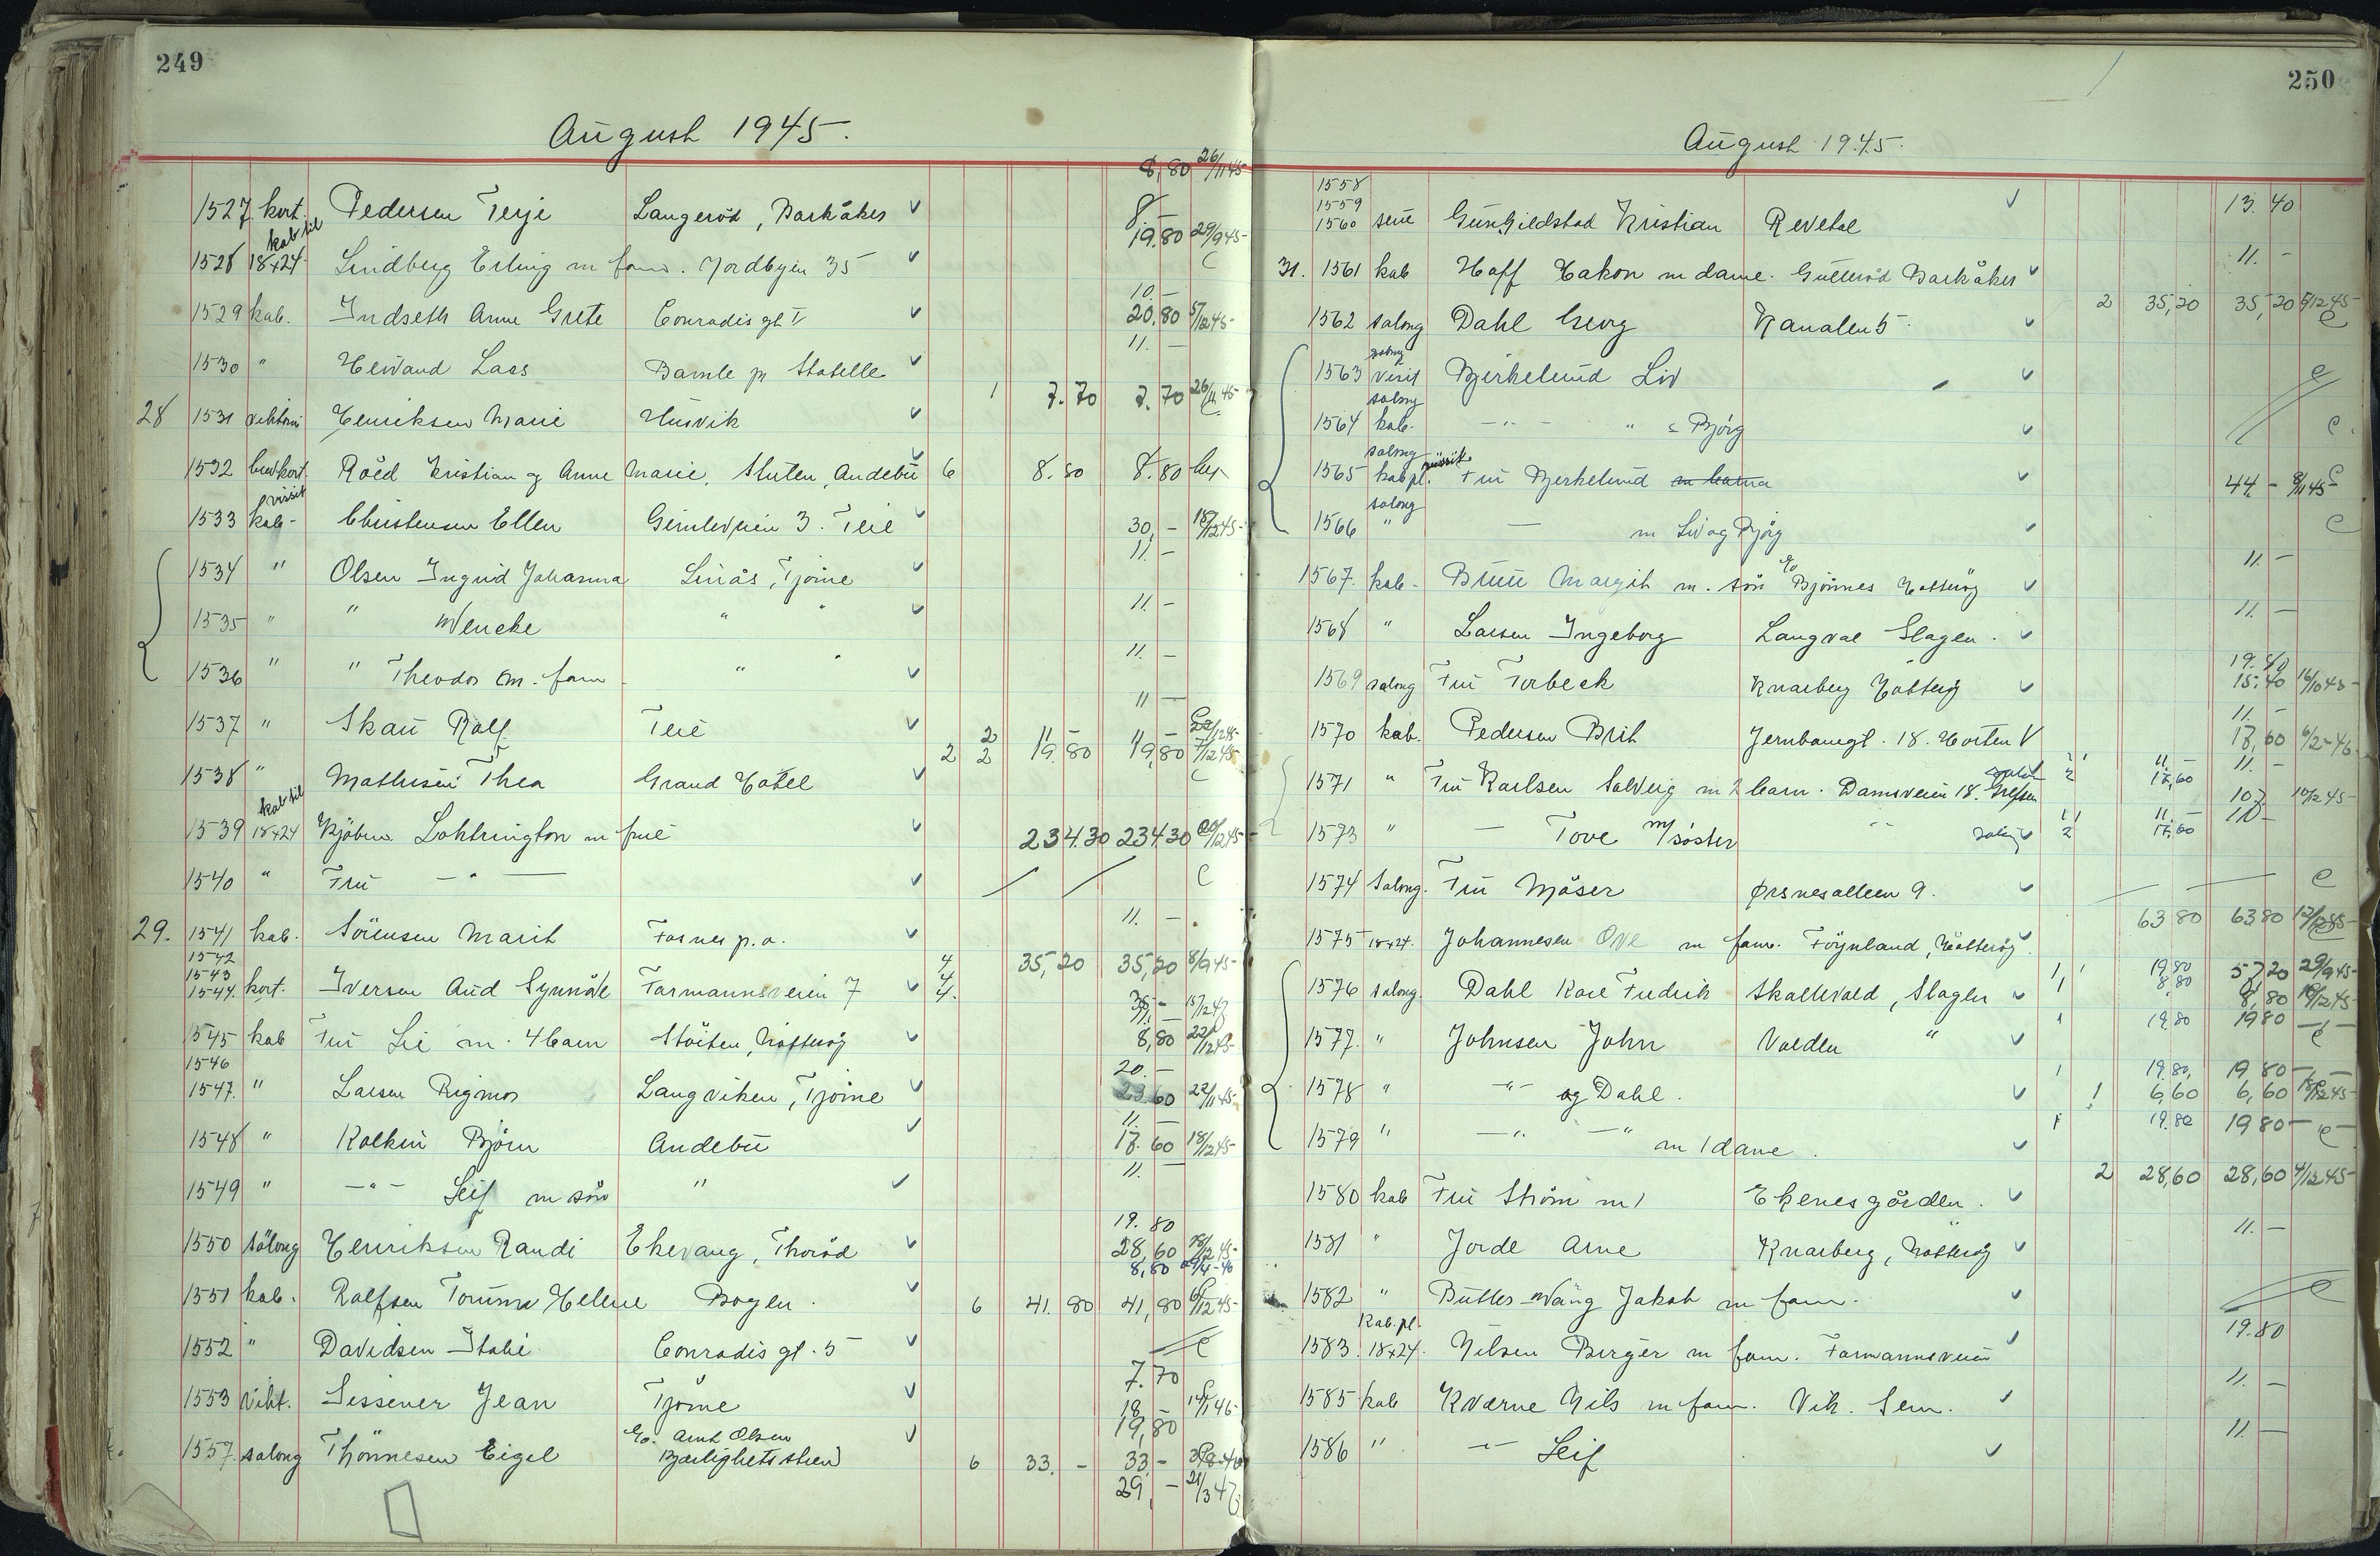 249
August 1945.
8,80 26/11 45
1527. kort. Pedersen Terje Langeröd, Barkåker 8.-
19.80 29/9 45-
kab til
1528 18x24 Lindberg Erling m fam. Nordbyen 35
10.-
1529 kab. Indseth Anne Grete Conradis gt 20,80 5/12 45-
11.-
1530 " Lars Bamle pr Statelle
1 7.70 7.70 26/11 45-
28 1531 Henriksen Marie Husvik
1532 brevkort. Röed Kristian og Anne Marie, Sluten, Andebu 6 8.80 8.80
visit
1533 kab- Christensen Ellen Gimleveien 3. Teie 30,- 18/12 45-
11.-
1534 " Olsen Ingrid Johanna Linås, Tjöme
11.-
1535 " " Wencke " "
11.-
1536 " " Theodor m. fam. " "
11-
1537 " Skau Rolf Teie 2 11- 11-
2 2 19.80 19,80 7/12 45-
1538 " Mathisen Thea Grand Hotel
kab til
1539 18x24 Kjöbm. Lohtrington m frue 234.30 234.30 20/12 45-
1540 " Fru - " -
11.-
29. 1541 kab. Sörensen Marit Farnes p.o.
1542
1543
1544. kort. Iversen Aud Synnöve Farmannsveien 7 4 4 4. 35,20 35,20 8/9 45-
1545 kab Fru Lie m. 4 barn Stöiten, Nötteröy 8,80 22/12 45-
1546
20.-
1547. " Larsen Rigmor Langviken, Tjöme 23.60 22/11 45-
11.-
1548 " Kolkin Björn Andebu 17.60 18/12 45-
11.-
1549 " - " - Leif m sön "
19.80
1550 salong Henriksen Randi Ekevang, Thoröd 28,60 18/12 45-
8,80
1551 kab. Rolfsen Tommy Helene Bogen. 6 41.80 41,80 6/12 45-
1552 " Davidsen Conradis gt. 5
7.70
1553 vikt. Sissener Jean Tjöme 18.-
19,80
C/o. Arnt Olsen
1557. salong Thönnesen Eigil Kjærlighetsstien 6 33.- 33.-
29,- 21/3 47
250
August 1945.
1558
1559
1560 serie Gunhildstad Kristian Revetal 13.40
11.-
31. 1561 kab Hoff Hakon m dame. Gulleröd Barkåker
2 35,20 35,20 5/12 45-
1562 salong Dahl Georg Kanalen 5.
salong
1563 visit Bjerkelund Liv
salong
1564 kab. - " - " Björg
salong
1565 kab pl. Fru Bjerkelund m barna 44.- 8/11 45-
salong
1566 " - m Liv og Björg
11.-
C/o
1567. kab- Bruu Margit m. sön Bjönnes Nötteröy
11.-
1568 " Larsen Ingeborg Langvae Slagen.
19.80
1569 salong Fru Torbeck Knarberg Nötteröy 15.40 16/10 45-
11.-
1570 kab. Pedersen Brit Jernbanegt. 18. Horten 17,60 6/2-46-
11.-
1571 " Fru Karlsen Solveig m 2 barn. Damsveien 18. Grefsen 11.- 17,60
1573 " - Tove m/ söster - " 11.- 17,60
1574 Salong. Fru Möser Örsnesalleen 9.
63.80 63.80 12/12 45-
1575 18x24. Johannesen Ove m fam. Föynland, Nötteröy.
19.80 57,20 29/9 45-
1576 salong. Dahl Kare Fredrik Skallevold, Slagen 8.80 8,80 18/12 45-
19.80 19.80 -
1577. " Johnsen John Valdlen "
19.80, 19.80
1578 " - " - og Dahl. 6,60 6,60 18/12 45-
19.80 19.80
1579 " - " - " m 1 dame.
2 28,60 28,60 4/12 45-
1580 kab Fru Ström m 1 Ekenesgården.
11.-
1581 " Jorde Arne Knarberg, Nötteröy
1582 " Butler-Wang Jakob m fam.
19.80
Kab.pl.
1583. 18x24. Nilsen Birger m fam. Farmannsveien
11.-
1585 kab Kværne Nils m fam. Vik. Sem.
11.-
1586 " - " Leif